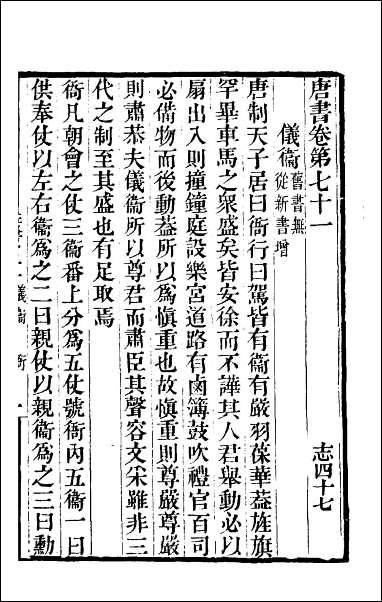 唐書卷第七十一 志四十七
儀衞 舊書無從新書增
唐制天子居曰衙行曰駕皆有衞有嚴羽葆華葢旌旗
罕畢車馬之衆盛矣皆安徐而不譁其人君舉動必以
扇出入則撞鐘庭設樂宮道路有鹵簿鼓吹禮官百司
必備物而後動葢所以爲愼重也故愼重則尊嚴尊嚴
則肅恭夫儀衞所以尊君而肅臣其聲容文采雖非三
代之制至其盛也有足取焉
衙凡朝會之仗三衞番上分爲五仗號衙內五衞一曰
供奉仗以左右衞爲之二曰親仗以親衞爲之三曰勳
儀衞 衙 一